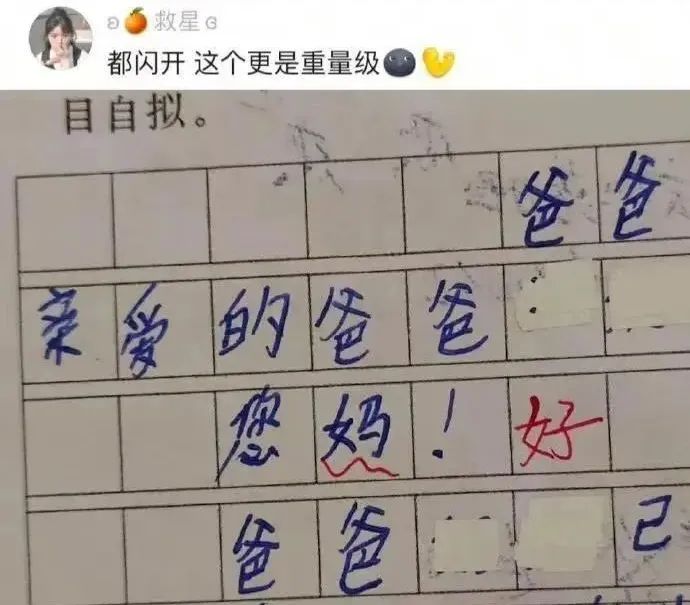 ʚ🍊救星ɞ
都闪开 这个更是重量级🌚💛
目自拟。
爸爸
亲爱的爸爸
您妈！好
爸爸 己